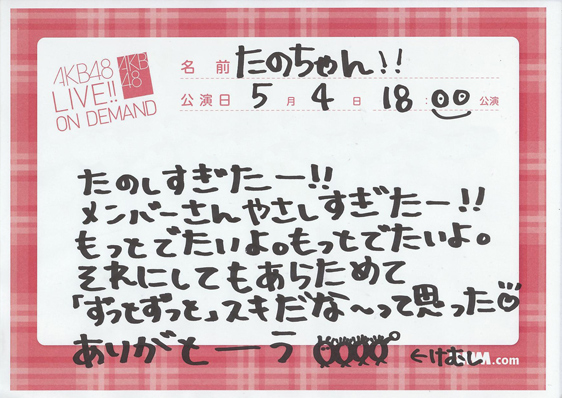 AKB48
LIVE!!
ON DEMAND
AKB
48
名前 たのちゃん!!
公演日 5月4日 18:00公演
たのしすぎたー!!
メンバーさんやさしすぎたー!!
もっとでたいよ。もっとでたいよ。
それにしてもあらためて
「ずっとずっと」スキだな〜って思った
ありがとーう ←けむし
.com